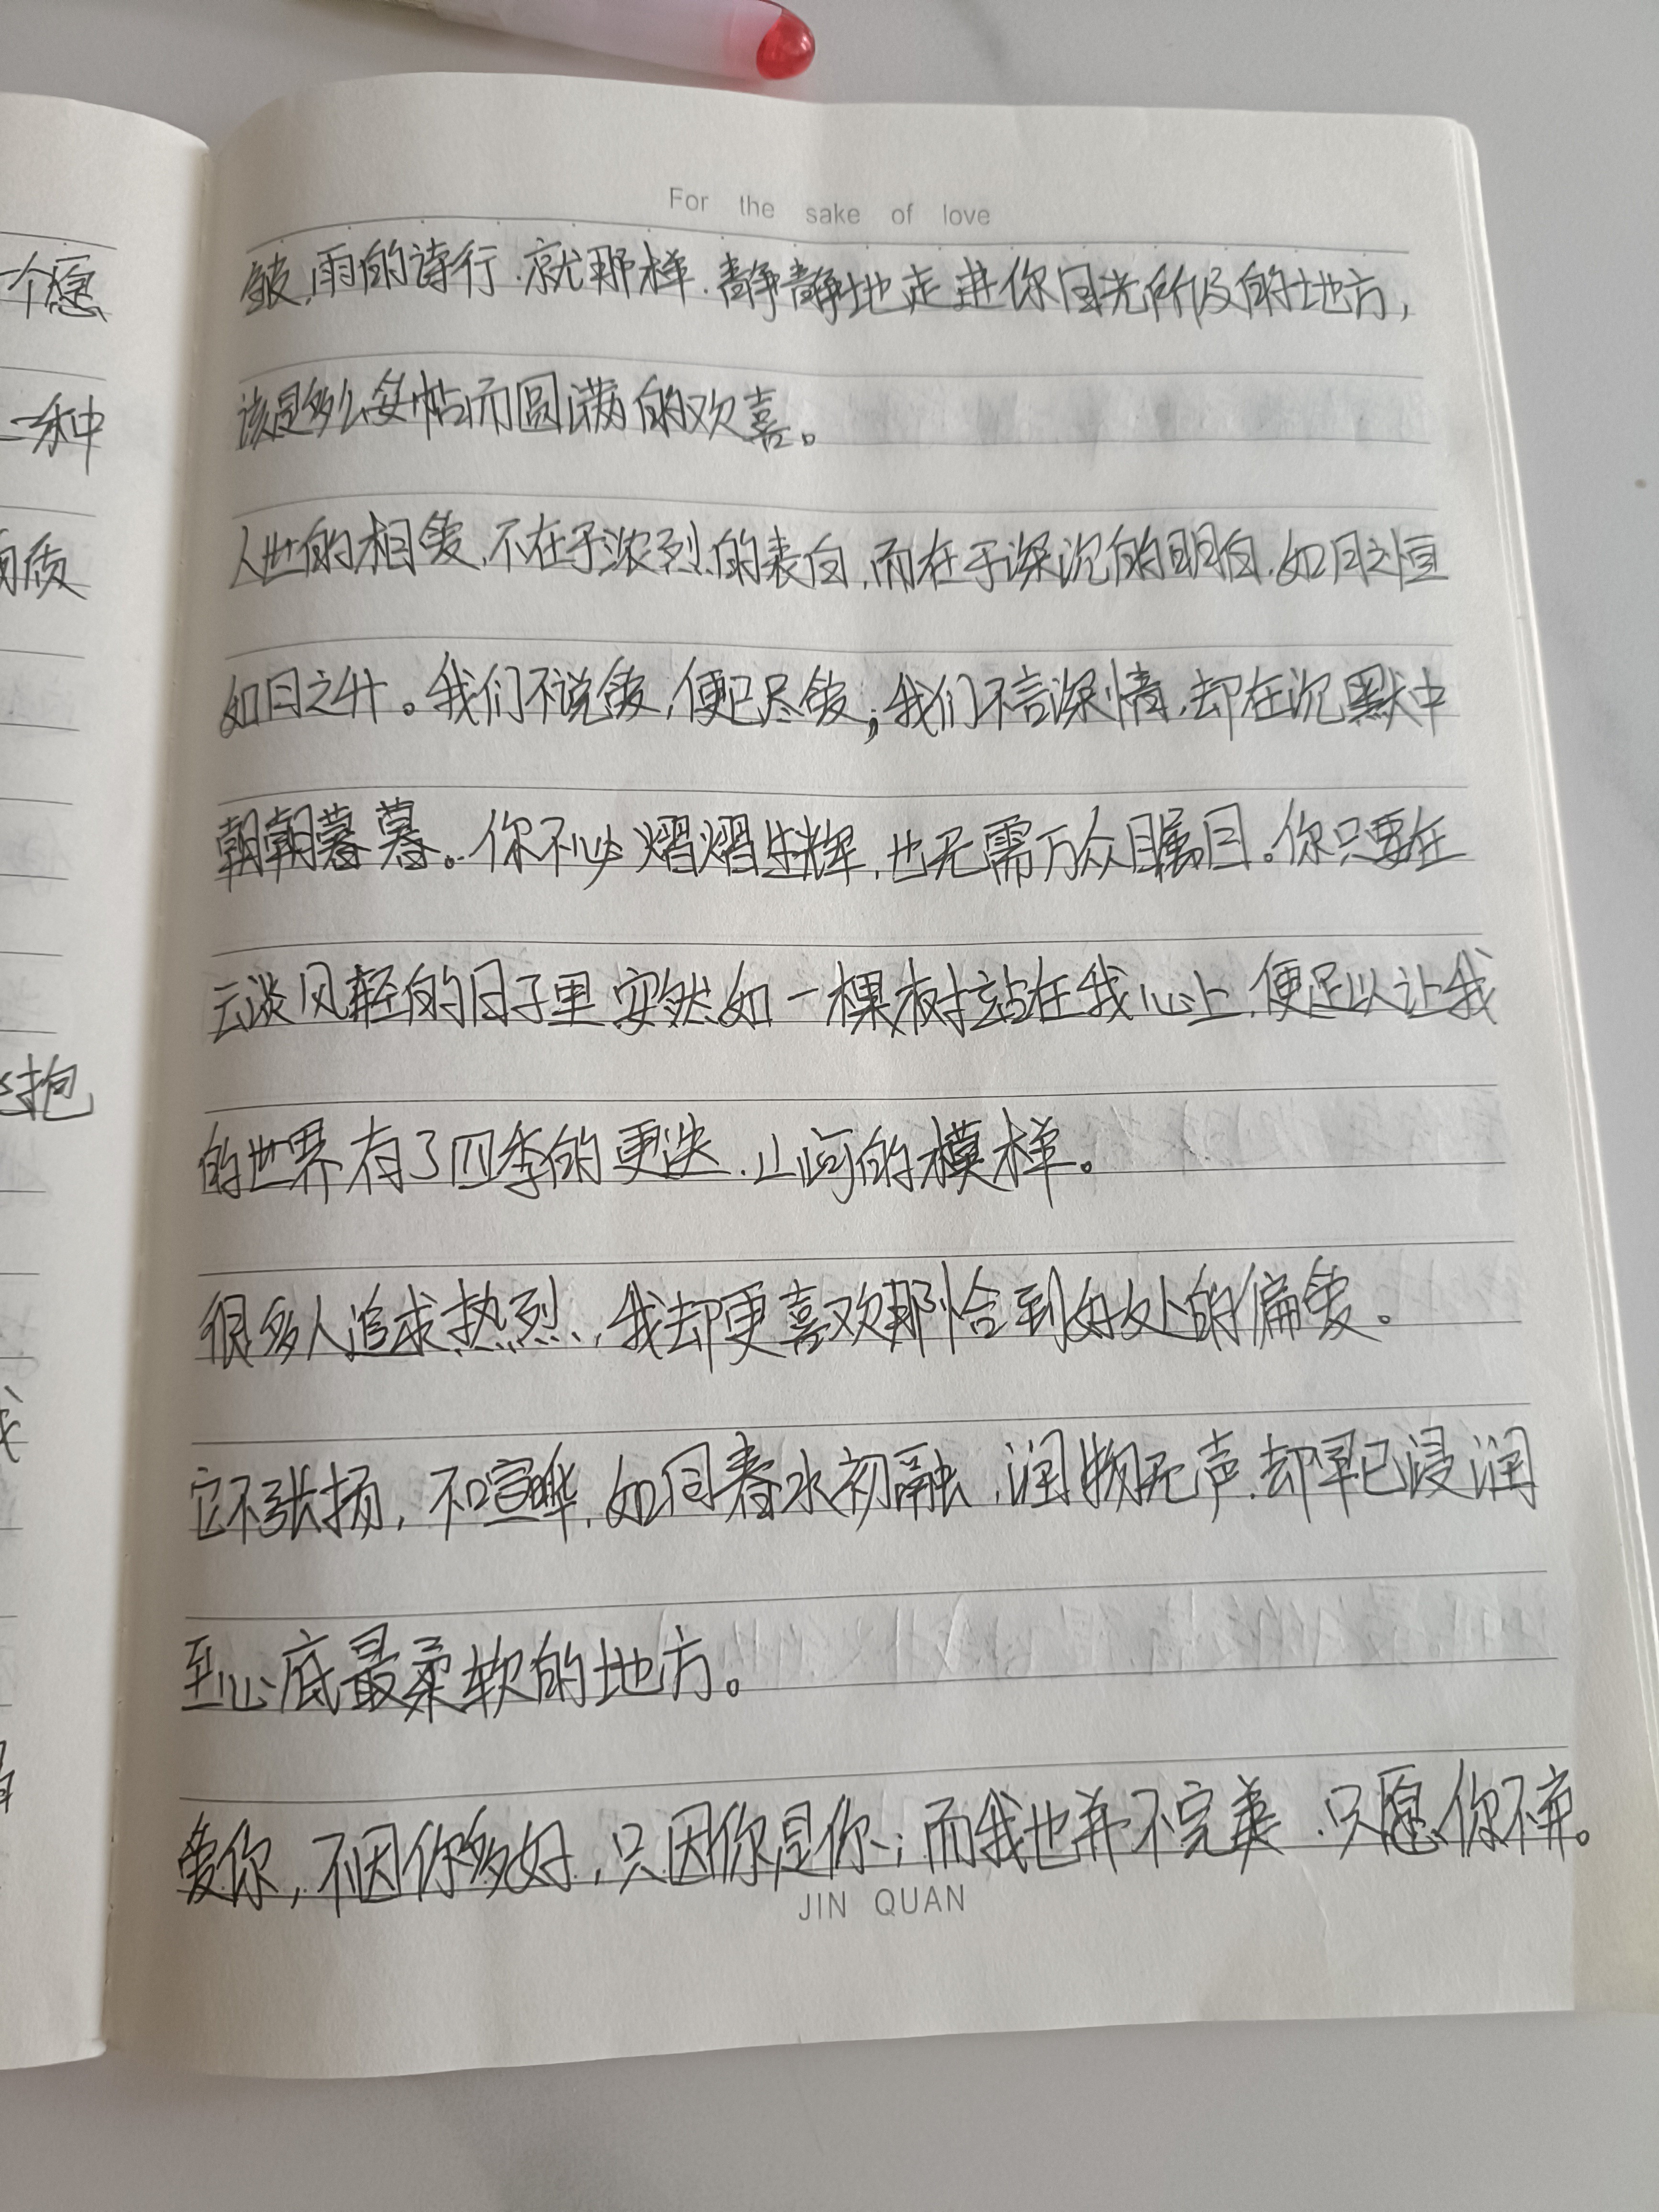 For the sake of love
皱,雨的诗行.就那样.静静地走进你目光所及的地方,
该是多么妥帖而圆满的欢喜。
人世的相爱,不在于浓烈的表白,而在于深沉的明白.如月之恒
如日之升。我们不说爱,便已尽爱;我们不言深情,却在沉默中
朝朝暮暮。你不必熠熠生辉,也无需万众瞩目。你只要在
云淡风轻的日子里安然如一棵树站在我心上,便足以让我
的世界有了四季的更迭.山河的模样。
很多人追求热烈,我却更喜欢那恰到好处的偏爱。
它不张扬,不喧哗,如同春水初融,润物无声.却早已浸润
到心底最柔软的地方。
爱你,不因你多好,只因你是你;而我也并不完美.只愿你不弃。
JIN QUAN
一个愿
一种
质
抱